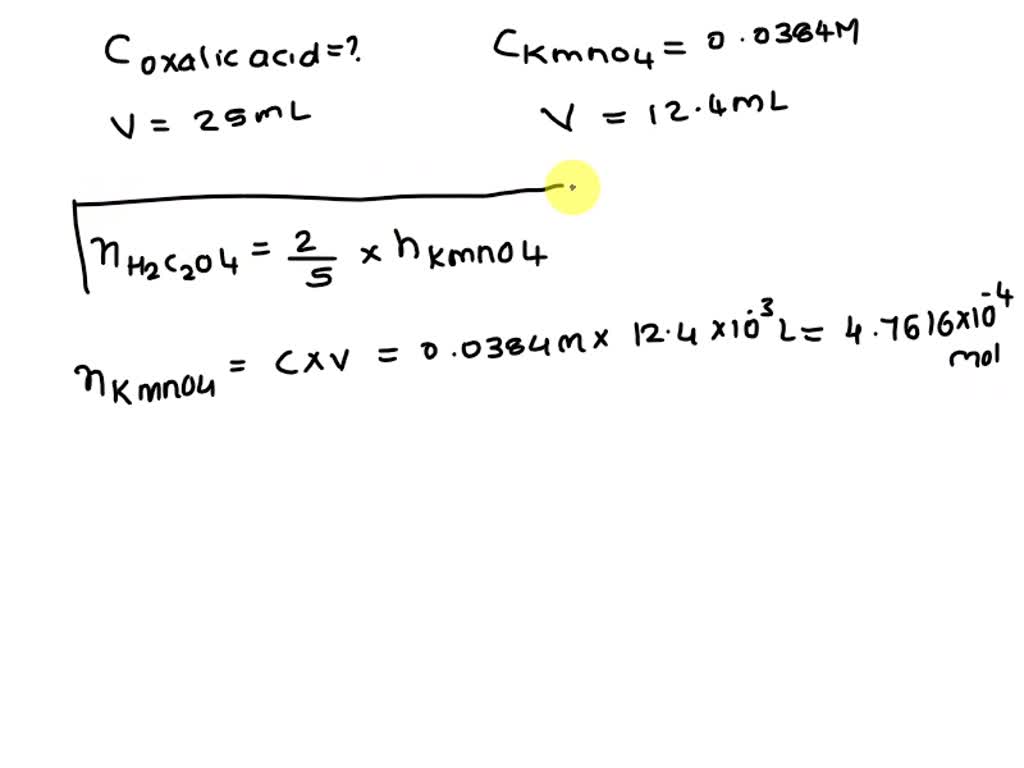 C oxalic acid = ? CKmnO4 = 0.0384M
V = 25mL V = 12.4mL
nH2C2O4 = 2/5 × nKmnO4
nKmnO4 = C×V = 0.0384M × 12.4×10⁻³L = 4.7616×10⁻⁴
mol